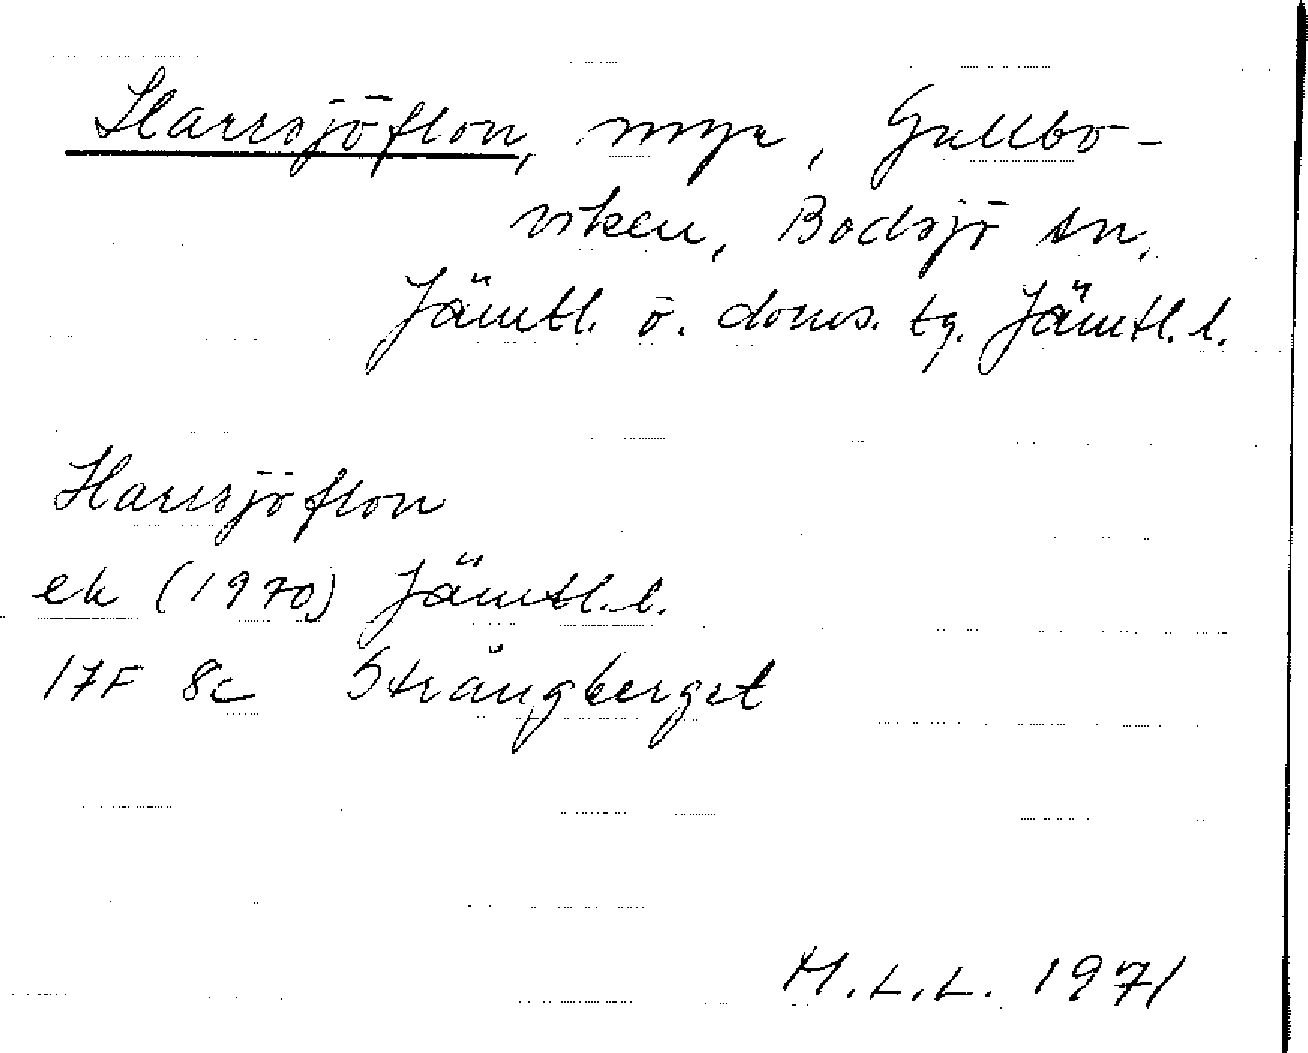 Harrsjöflon, myr, Gullbo-
viken, Bodsjö sn,
Jämtl. ö. doms. tg. Jämtl. l.
Harrsjöflon
ek (1970) Jämtl. l.
17F 8c Strångberget
M.L.L. 1971